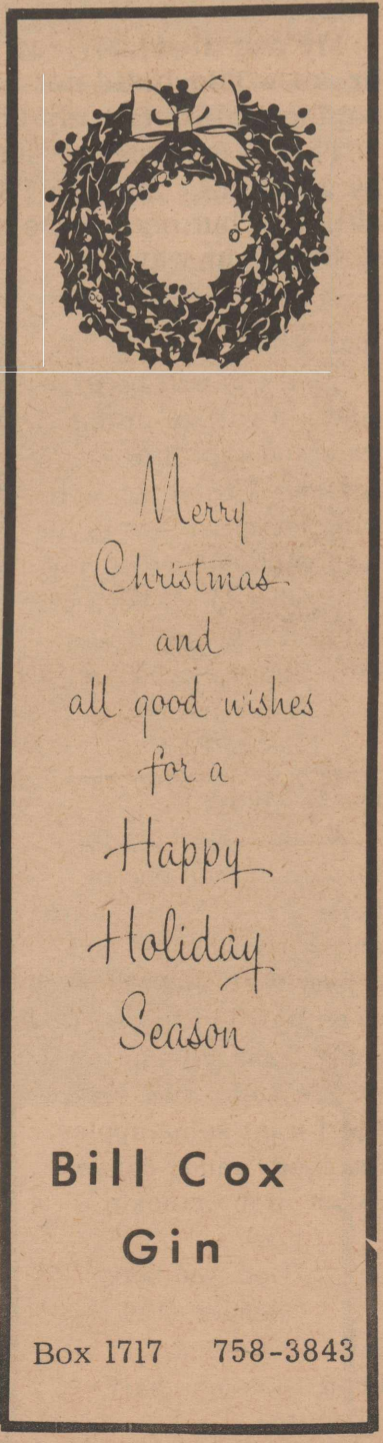 Merry
Christmas
and
all good wishes
for a
Happy
Holiday
Season
Bill Cox
Gin
Box 1717 758-3843